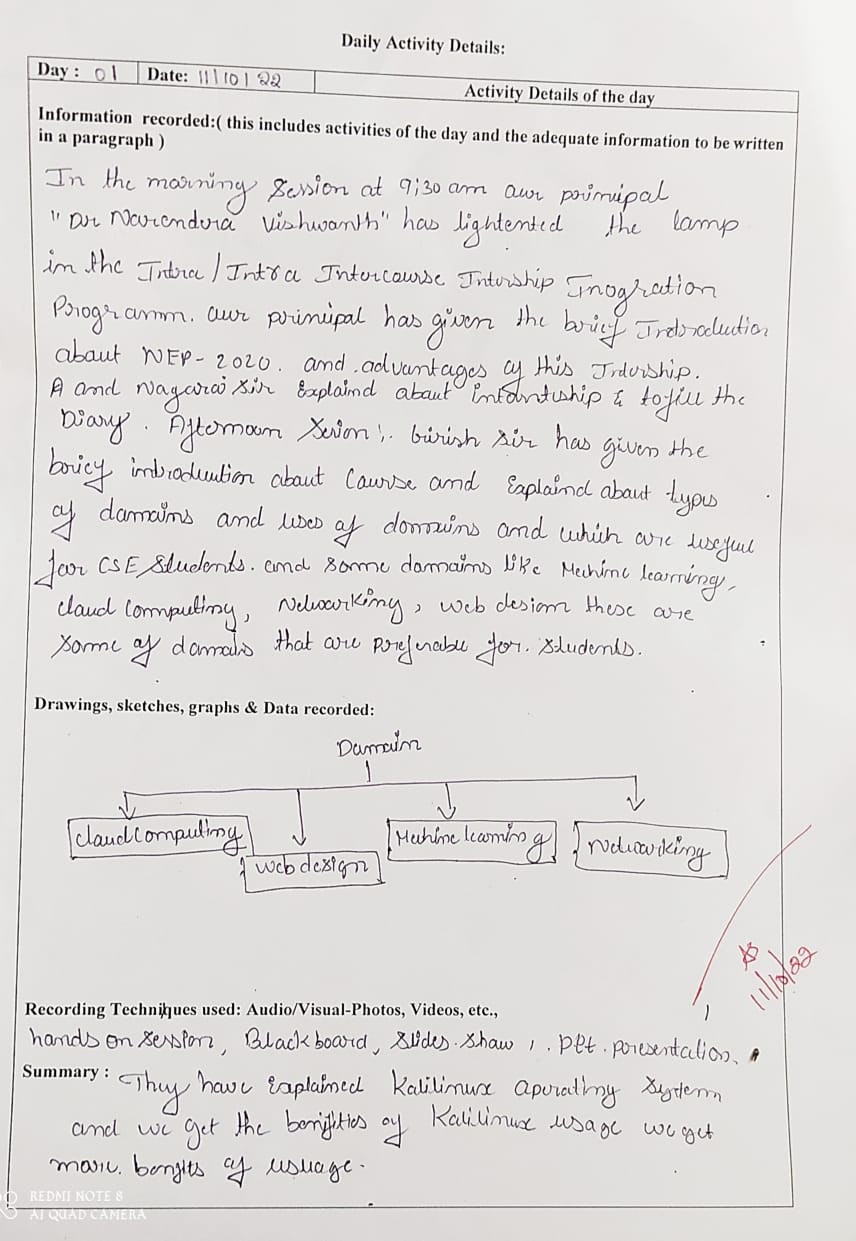 Daily Activity Details:
Day : 01 Date: 11/10/22 Activity Details of the day
Information recorded:( this includes activities of the day and the adequate information to be written
in a paragraph )
In the morning Session at 9:30 am our principal
"Dr Narendera Vishwanth" has lightented the lamp
in the Intra / Intra Intercourse Intership Inogration
Programm. our principal has given the brief Introduction
about NEP-2020. and .advantages of this Intership.
A and Nagaraj Sir Explaind about & to fill the
Diary. Afternoon Sesion :. Girish Sir has given the
brief introduction about Course and Explaind about types
of domains and uses of domains and which are useful
for CSE Students. and some domains like Mechine learning,
cloud computing, Networking, web desion these are
some of domais that are preferable for. Students.
Drawings, sketches, graphs & Data recorded:
Domain
cloud computing
web design
Mechine learning
Networking
11/10/22
Recording Techniques used: Audio/Visual-Photos, Videos, etc.,
hands on session, Black board, Slides. Show , . PPt. presentation.
Summary : They have Explained Kalilinux operating System
and we get the benifities of Kalilinux usage we get
more. bengits of usuage.
REDMI NOTE 8
AI QUAD CAMERA